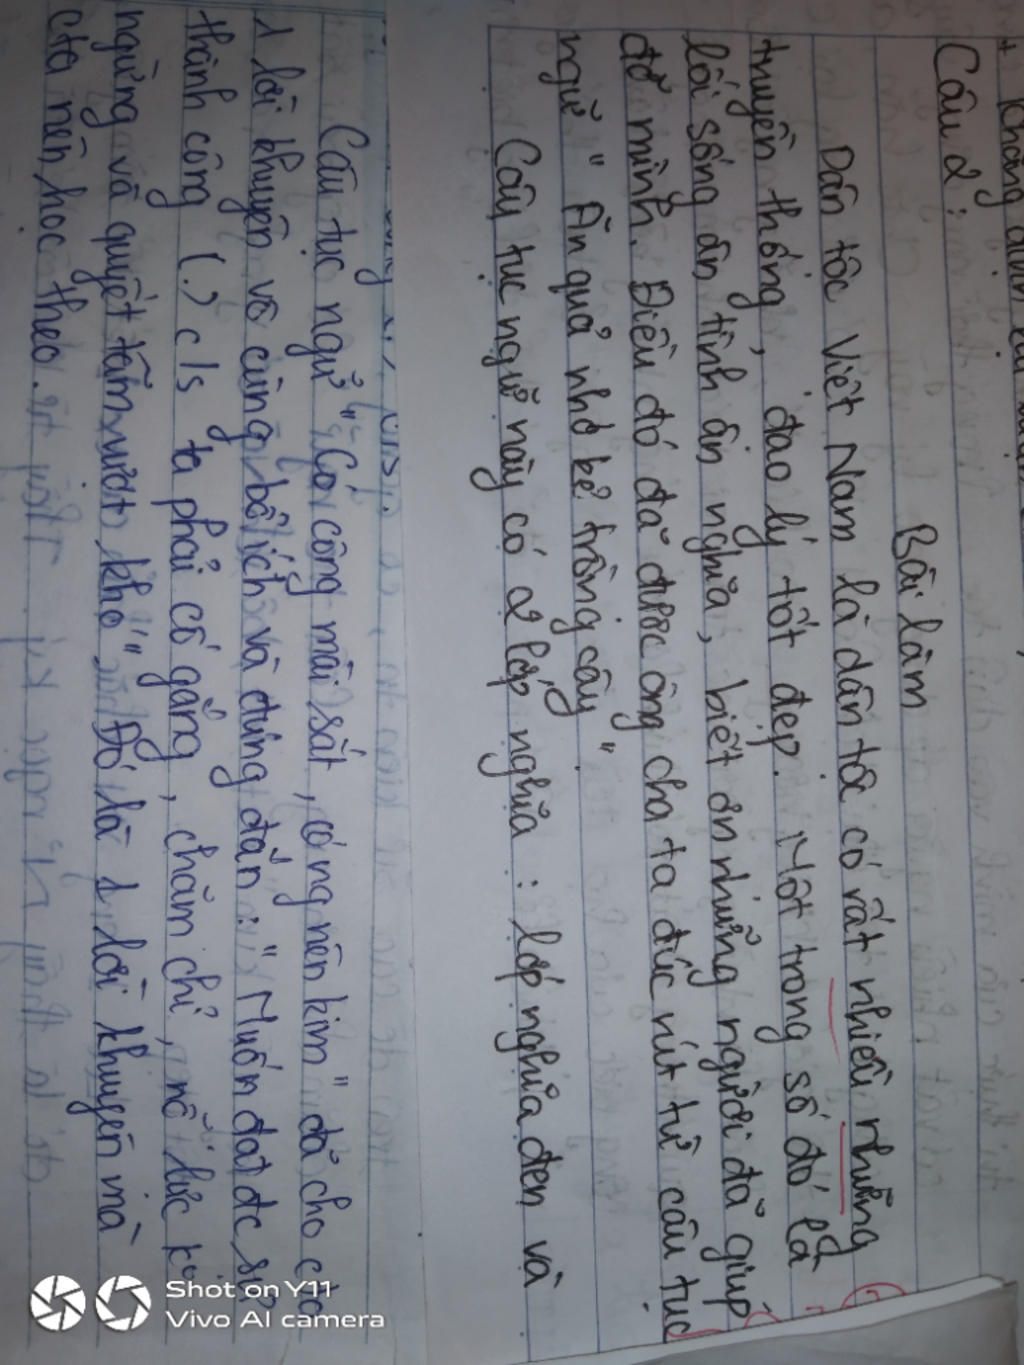 Câu 2:
Bài làm
Dân tộc Việt Nam là dân tộc có rất nhiều những
truyền thống, đạo lý tốt đẹp. Một trong số đó là
lối sống ân tình ân nghĩa, biết ơn những người đã giúp
đỡ mình. Điều đó đã được ông cha ta đúc rút từ câu tục
ngữ "Ăn quả nhớ kẻ trồng cây"
Câu tục ngữ này có 2 lớp nghĩa: lớp nghĩa đen và
Câu tục ngữ "Có công mài sắt, có ngày nên kim" đã cho
1 lời khuyên vô cùng bổ ích và đúng đắn: "Muốn đạt đc sự
thành công (.) c/s ta phải cố gắng, chăm chỉ, nỗ lực
ngừng và quyết tâm vượt khó" Đó là 1 lời khuyên mà
cta nên học theo.
Shot on Y11
Vivo AI camera